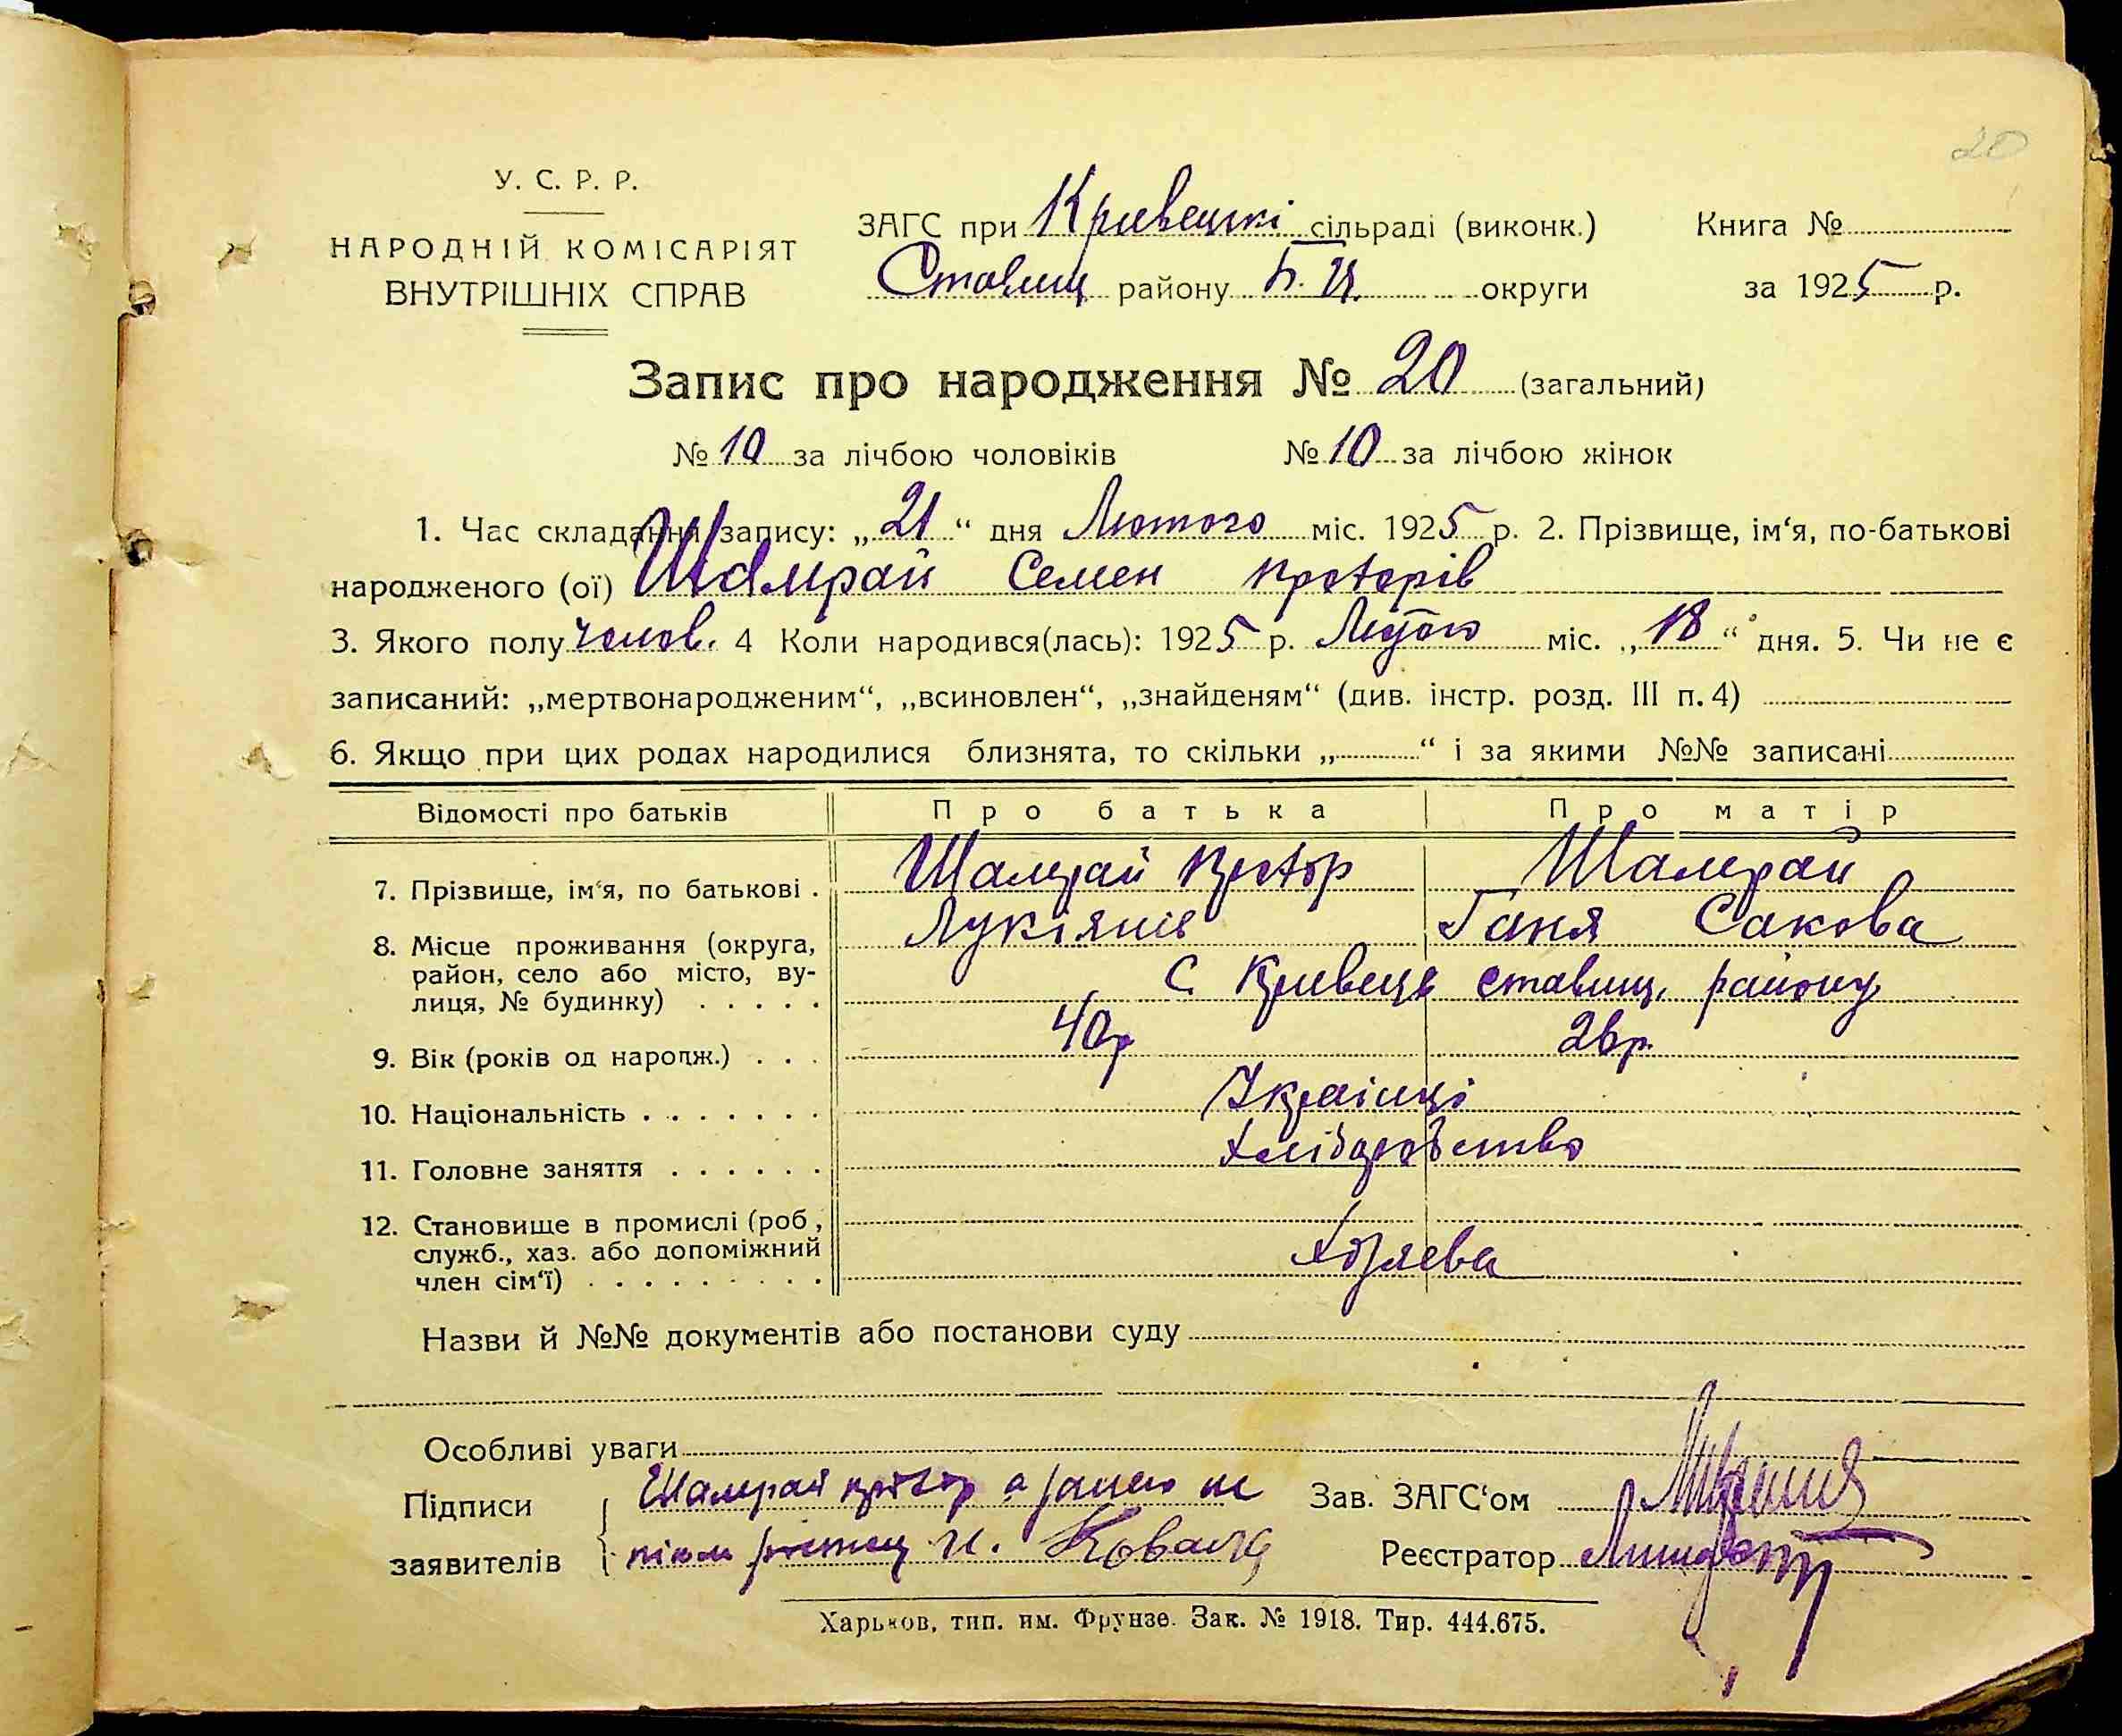 20
У. С. Р. Р.
НАРОДНІЙ КОМІСАРІЯТ
ВНУТРІШНІХ СПРАВ
ЗАГС при Кривецкі сільраді (виконк.)
Ставищ району Б. Ц. округи
Книга №
за 1925 р.
Запис про народження № 20 (загальний)
№ 10 за лічбою чоловіків № 10 за лічбою жінок
1. Час складання запису: „21“ дня Лютого міс. 1925 р. 2. Прізвище, ім‘я, по-батькові
народженого (ої) Шамрай Семен
3. Якого полу чолов. 4 Коли народився(лась): 1925 р. міс. „18“ дня. 5. Чи не є
записаний: „мертвонародженим“, „всиновлен“, „знайденям“ (див. інстр. розд. III п. 4)
6. Якщо при цих родах народилися близнята, то скільки „ “ і за якими №№ записані
Відомості про батьків Про батька Про матір
7. Прізвище, ім‘я, по батькові . Шамрай Шамрай
Лукіянів Ганя Сакова
8. Місце проживання (округа,
район, село або місто, ву-
лиця, № будинку) . . . . . С Кривець ставищ. району
9. Вік (років од нородж.) . . . 40р 26р.
10. Національність . . . . . . . Українці
11. Головне заняття . . . . . . Хліборобство
12. Становище в промислі (роб,
служб., хаз. або допоміжний
член сім‘ї) . . . . . . . . . Хозяева
Назви й №№ документів або постанови суду
Особливі уваги
Підписи заявителів
Шамрай а за його не
письм росписц Коваль
Зав. ЗАГС‘ом
Реєстратор
Харьков, тип. им. Фрунзе. Зак. № 1918. Тир. 444.675.